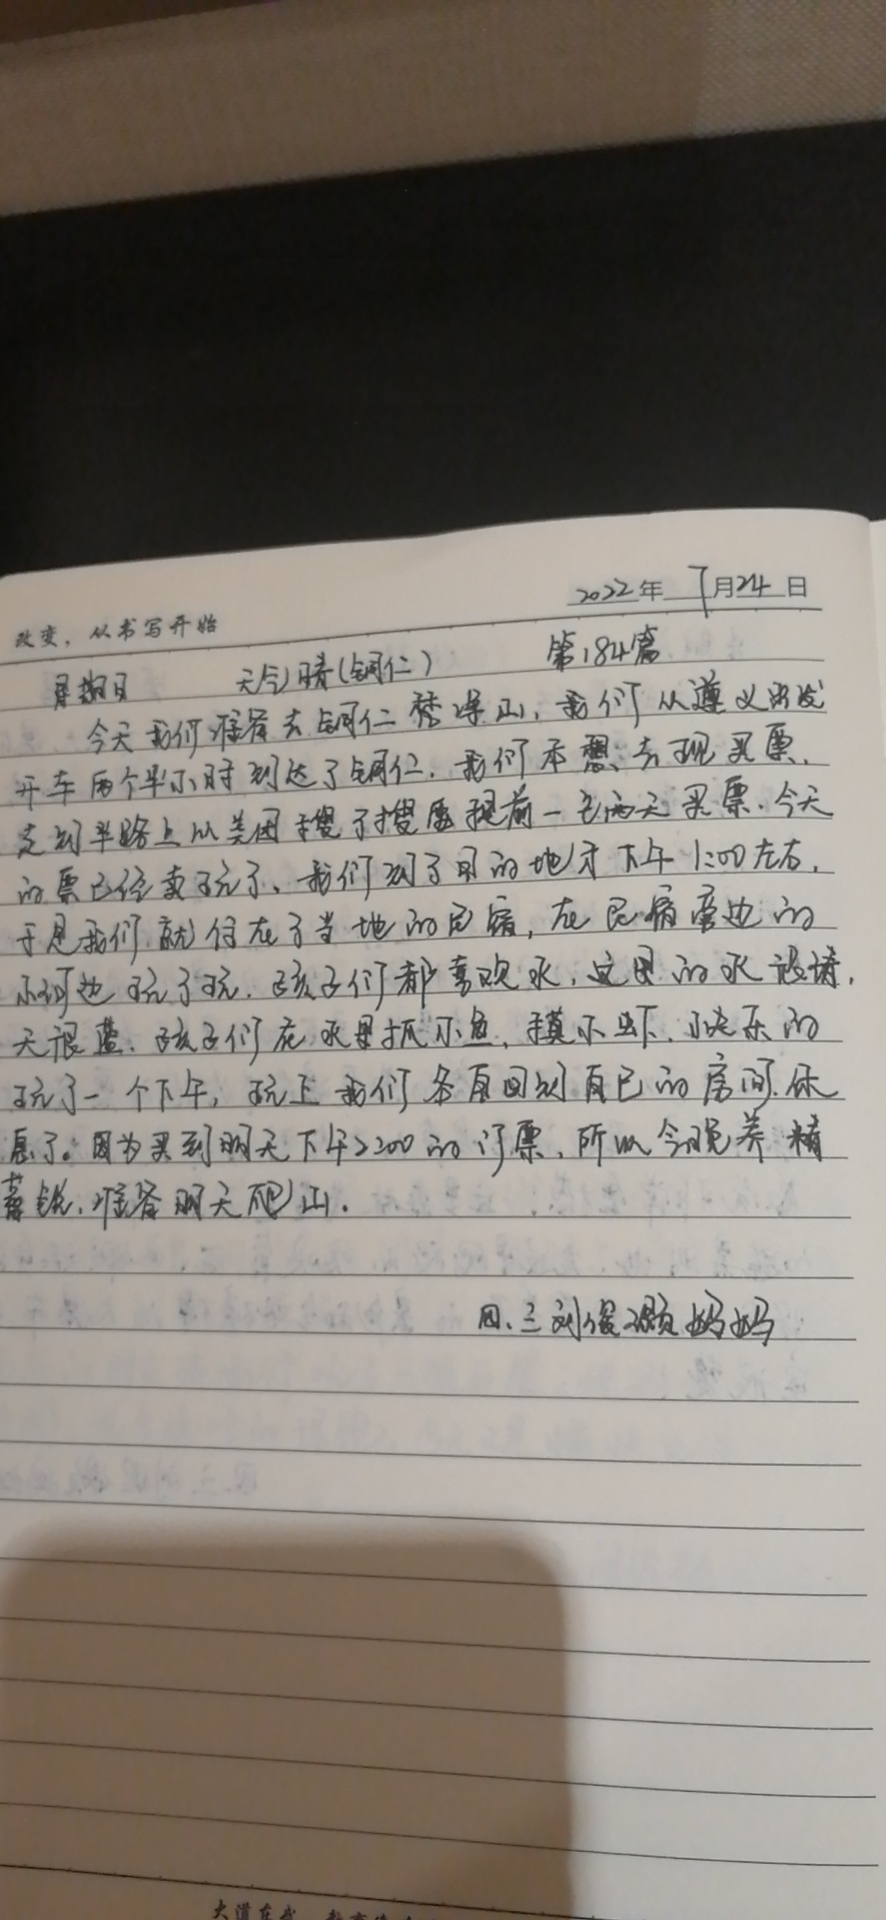 2022年 7月24日
改变，从书写开始
星期日 天气晴(铜仁) 第184篇
今天我们准备去铜仁梵净山，我们从遵义出发
开车两个半小时到达了铜仁，我们本想去现买票，
走到半路上以美团搜了搜要提前一至两天买票，今天
的票已经卖玩了、我们到了目的地才下午1:00左右，
于是我们就住在了当地的民宿，在民宿旁边的
小河边玩了玩，孩子们都喜欢水，这里的水很清，
天很蓝，孩子们在水里抓小鱼，摸小虾、快乐的
玩了一个下午，晚上我们各自回到自己的房间休
息了。因为买到明天下午2:00的门票，所以今晚养精
蓄锐，准备明天爬山。
四、三刘俊灏妈妈